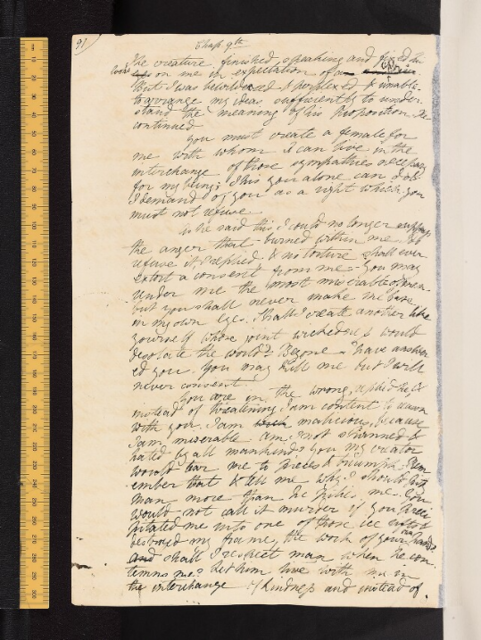 91
Chap. 9th
The creature finished speaking and fixed his
looks on me in expectation of a reply
But I was bewildered & perplexed & unable
to arrange my ideas sufficiently to under
stand the meaning of his proposition. He
continued
You must create a female for
me with whom I can live in the
interchange of those sympathies necessary
for my being; This you alone can do &
I demand of you as a right which you
must not refuse
As he said this I could no longer suppress
the anger that burned within me. I do
refuse it, I replied & no torture shall ever
extort a consent from me. You may
render me the most miserable of men
but you shall never make me base
in my own eyes. Shall I create another like
yourself whose joint wickedness would
desolate the world? Begone I have answer
ed you. You may kill me but I will
never consent.
You are in the wrong, replied he, &
instead of threatening I am content to reason
with you. I am malicious, because
I am miserable. Am I not shunned &
hated by all mankind? You my creator
would tear me to pieces & triumph. Rem
ember that & tell me why I should pity
man more than he pities me. You
would not call it murder if you preci
pitated me into one of those ice rifts &
destroyed my frame, the work of your own hands.
and shall I respect man when he con
temns me? Let him live with me in
the interchange of kindness and instead of